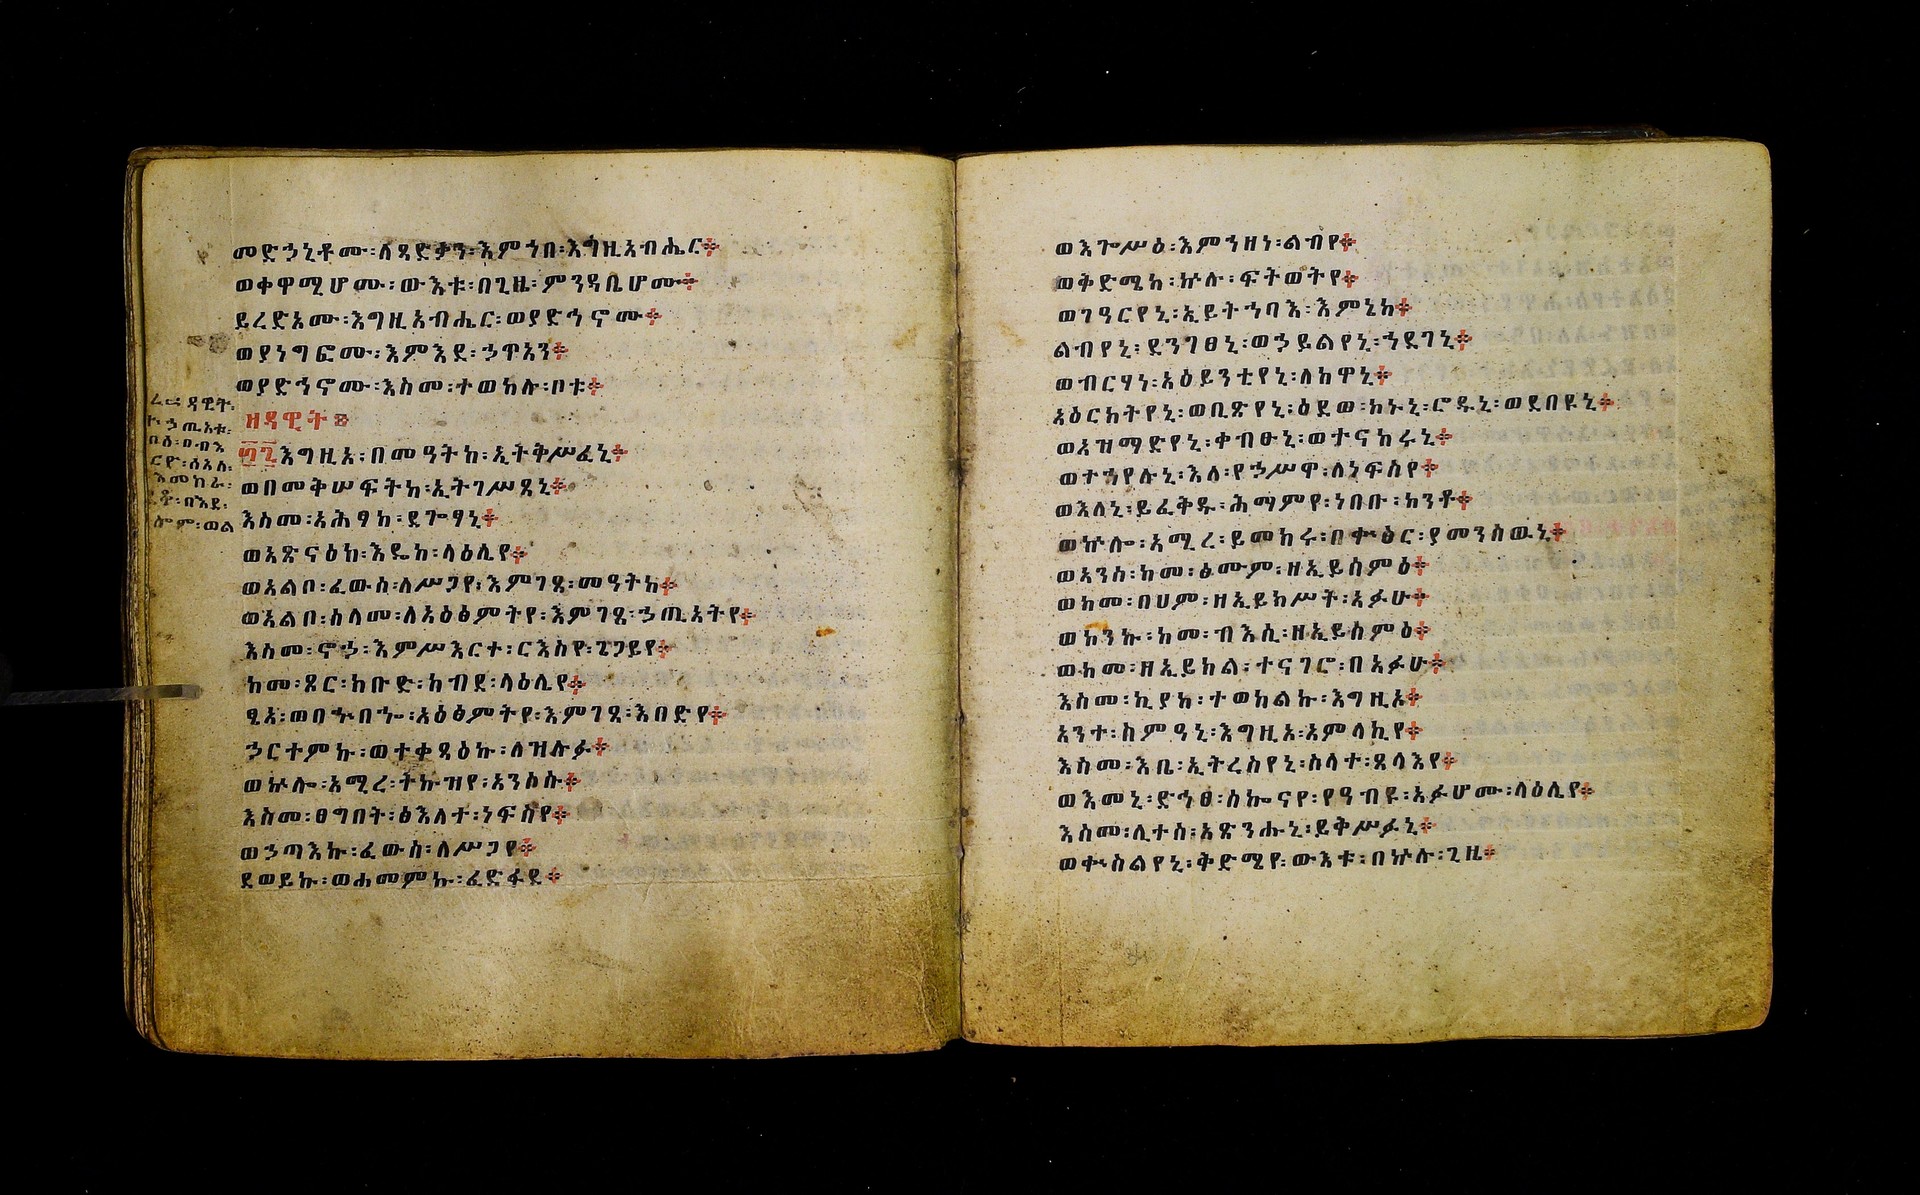 መድኃኒቶሙ፡ለጻድቃን፡እምኀበ፡እግዚአብሔር፨
ወቀዋሚሆሙ፡ውእቱ፡በጊዜ፡ምንዳቤሆሙ፨
ይረድአሙ፡እግዚአብሔር፡ወያድኅኖሙ፨
ወያነግፎሙ፡እምእደ፡ኃጥአን፨
ወያድኅኖሙ፡እስመ፡ተወከሉ፡ቦቱ፨
ዘዳዊት፨
፴፯እግዚአ፡በመዓትከ፡ኢትቅሥፈኒ፨
ወበመቅሠፍትከ፡ኢትገሥጸኒ፨
እስመ፡አሕፃከ፡ደጐፃኒ፨
ወአጽናዕከ፡እዴከ፡ላዕሌየ፨
ወአልቦ፡ፈውስ፡ለሥጋየ፡እምገጸ፡መዓትከ፨
ወአልቦ፡ሰላመ፡ለአዕፅምትየ፡እምገጸ፡ኃጢአትየ፨
እስመ፡ኖኃ፡እምሥእርተ፡ርእስየ፡ጌጋይየ፨
ከመ፡ጾር፡ከቡድ፡ከብደ፡ላዕሌየ፨
ፄአ፡ወባኍብኈ፡አዕፅምትየ፡እምገጸ፡እበድየ፨
ኃርተምኩ፡ወተቀጻዕኩ፡ለዝሉፉ፨
ወኵሎ፡አሚረ፡ትኩዝየ፡አንሶሱ፨
እስመ፡ፀግበት፡ፅእለተ፡ነፍስየ፨
ወኃጣእኩ፡ፈውሰ፡ለሥጋየ፨
ደወይኩ፡ወሐመምኩ፡ፈድፋደ፨
ወእጐሥዕ፡እምኀዘነ፡ልብየ፨
ወቅድሜከ፡ኵሉ፡ፍትወትየ፨
ወገዓርየኒ፡ኢይትኀባእ፡እምኔከ፨
ልብየኒ፡ደንገፀኒ፡ወኃይልየኒ፡ኀደገኒ፨
ወብርሃነ፡አዕይንቲየኒ፡ለከዋኒ፨
አዕርክትየኒ፡ወቢጽየኒ፡ዕደወ፡ከኑኒ፡ሮዱኒ፡ወደበዩኒ፨
ወአዝማድየኒ፡ቀብፁኒ፡ወተናከሩኒ፨
ወተኀየሉኒ፡እለ፡የኃሥዋ፡ለነፍስየ፨
ወእለኒ፡ይፈቅዱ፡ሕማምየ፡ነበቡ፡ከንቶ፨
ወኵሎ፡አሚረ፡ይመክሩ፡በቍፅር፡ያመንስዉኒ፨
ወአንሰ፡ከመ፡ፅሙም፡ዘኢይሰምዕ፨
ወከመ፡በሀም፡ዘኢይከሥት፡አፉሁ፨
ወከንኩ፡ከመ፡ብእሲ፡ዘኢይሰምዕ፨
ወከመ፡ዘኢይክል፡ተናገሮ፡በአፉሁ፨
እስመ፡ኪያከ፡ተወከልኩ፡እግዚኦ፨
አንተ፡ስምዓኒ፡እግዚአ፡አምላኪየ፨
እስመ፡እቤ፡ኢትረስየኒ፡ስላተ፡ጸላእየ፨
ወእመኒ፡ድኅፀ፡ሰኰናየ፡የዓብዩ፡አፉሆሙ፡ላዕሌየ፨
እስመ፡ሊተሰ፡አጽንሑኒ፡ይቅሥፉኒ፨
ወቍስልየኒ፡ቅድሜየ፡ውእቱ፡በኵሉ፡ጊዜ፨